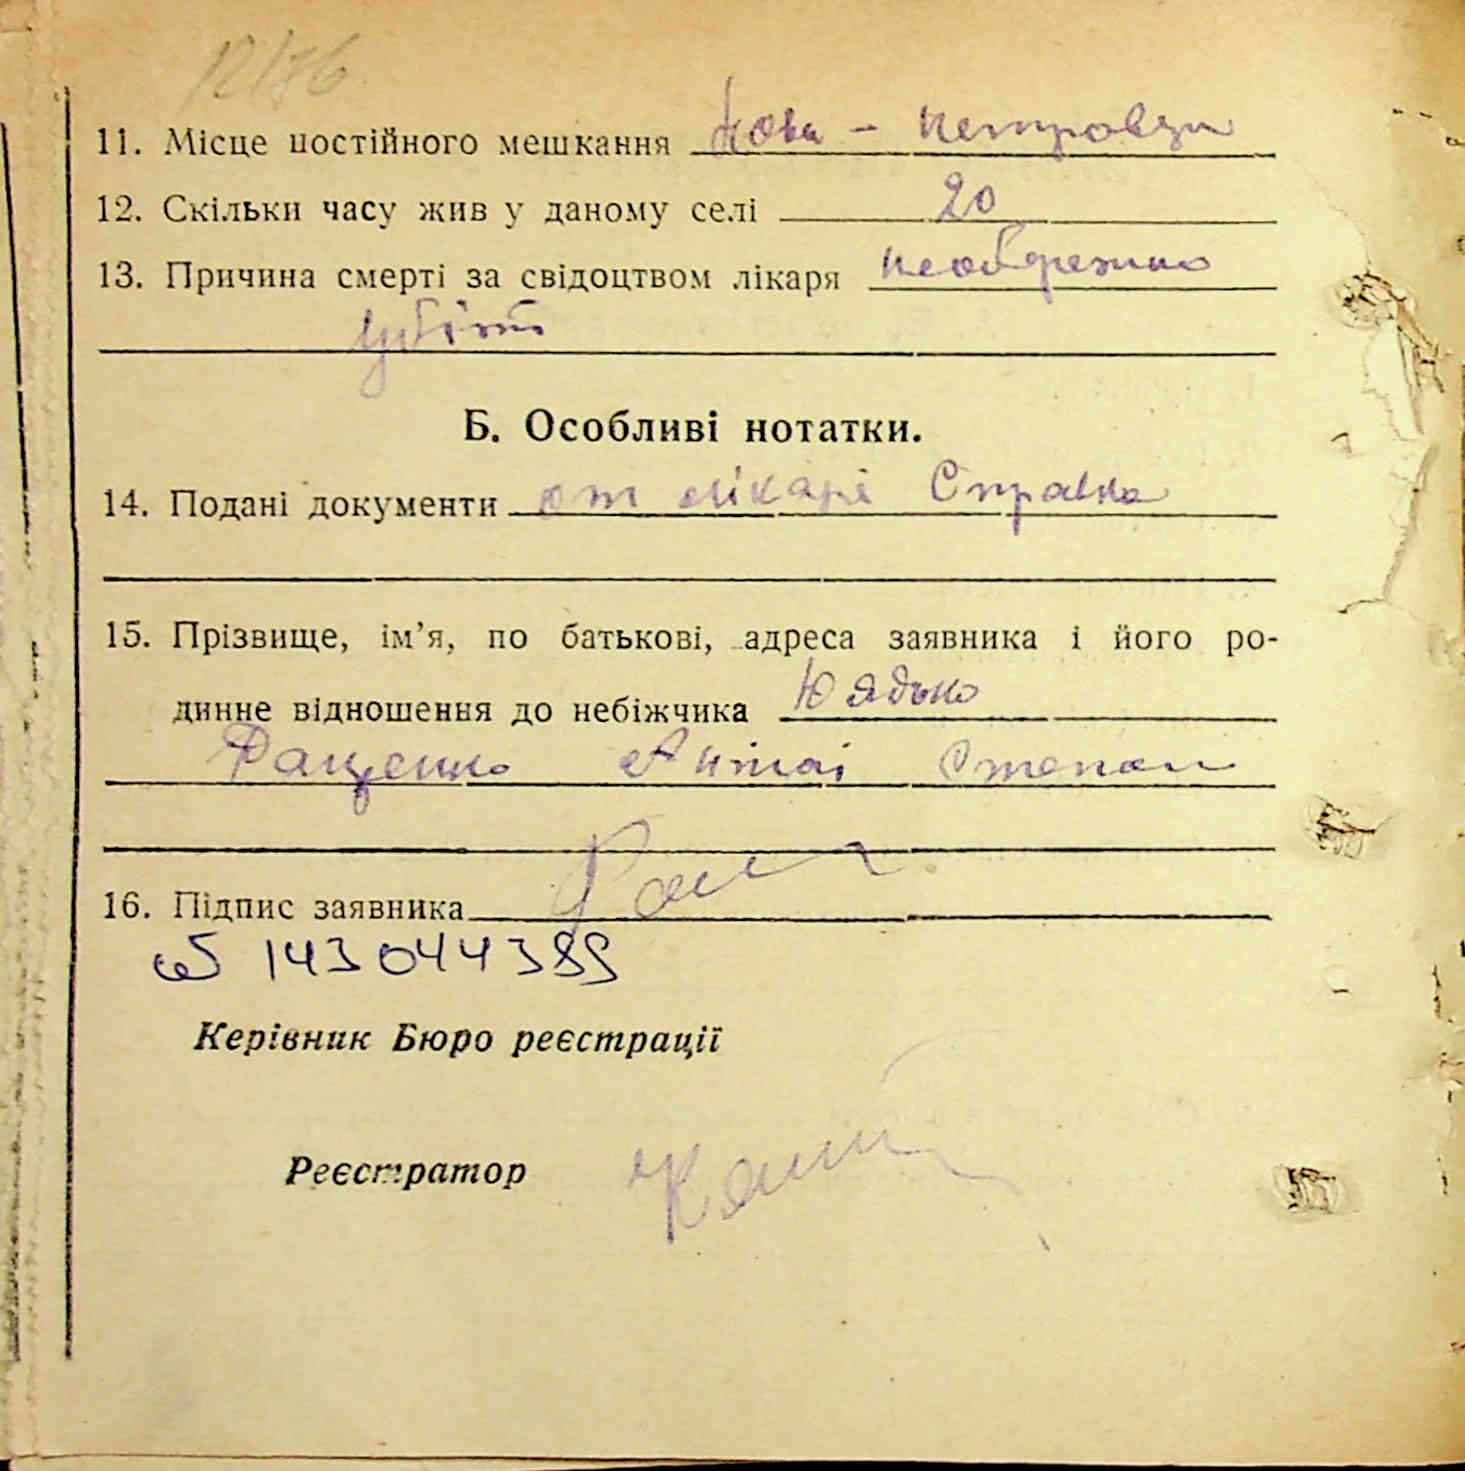 12/76
11. Місце постійного мешкання Нова - Петровци
12. Скільки часу жив у даному селі 20
13. Причина смерті за свідоцтвом лікаря необрежно
убіт
Б. Особливі нотатки.
14. Подані документи от лікарі Справка
15. Прізвище, ім’я, по батькові, адреса заявника і його ро-
динне відношення до небіжчика дядько
Даценко Антоі Степан
16. Підпис заявника
143044389
Керівник Бюро реєстрації
Реєстратор